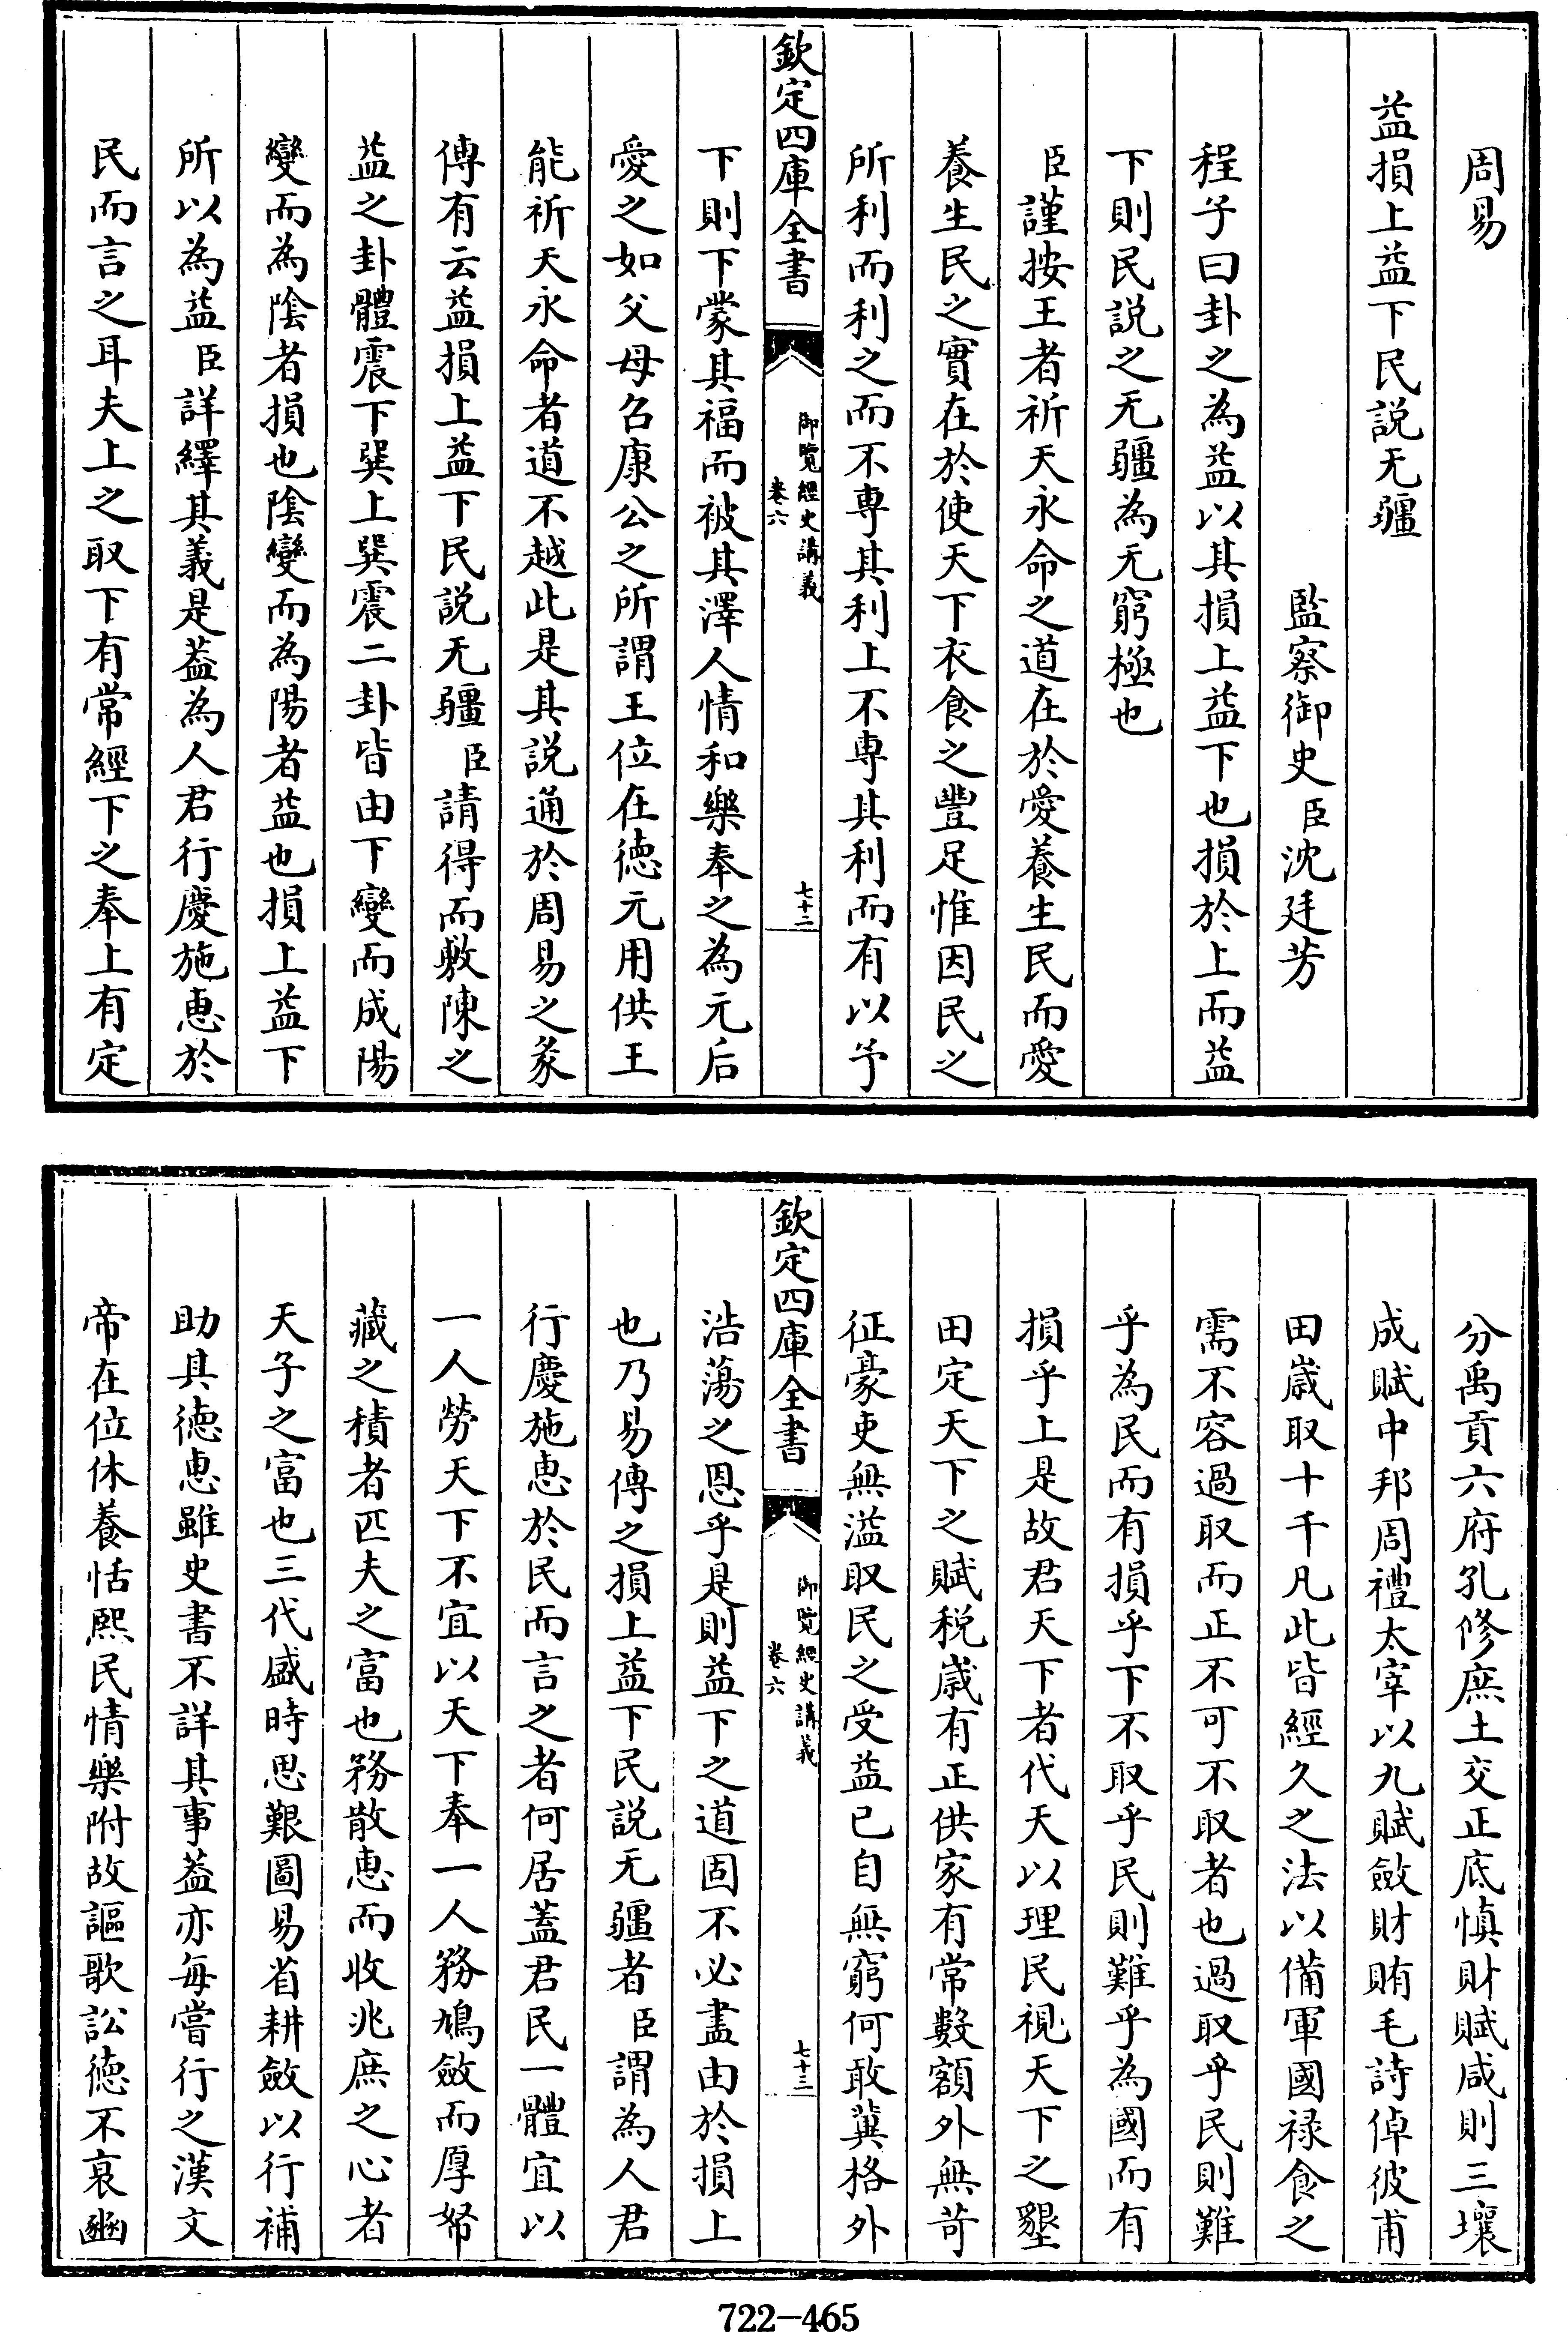 周易
益損上益下民説无疆
監察御史臣沈廷芳
程子曰卦之為益以其損上益下也損於上而益
下則民説之无疆為无窮極也
臣謹按王者祈天永命之道在於愛養生民而愛
養生民之實在於使天下衣食之豐足惟因民之
所利而利之而不専其利上不専其利而有以予
欽定四庫全書
御覽經史講義
卷六
七十二
下則下蒙其福而被其澤人情和樂奉之為元后
愛之如父母召康公之所謂王位在徳元用供王
能祈天永命者道不越此是其説通於周易之彖
傳有云益損上益下民説无疆臣請得而敷陳之
益之卦體震下巽上巽震二卦皆由下變而成陽
變而為陰者損也陰變而為陽者益也損上益下
所以為益臣詳繹其義是葢為人君行慶施惠於
民而言之耳夫上之取下有常經下之奉上有定
分禹貢六府孔修庶土交正底慎財賦咸則三壤
成賦中邦周禮太宰以九賦斂財賄毛詩倬彼甫
田嵗取十千凡此皆經久之法以備軍國禄食之
需不容過取而正不可不取者也過取乎民則難
乎為民而有損乎下不取乎民則難乎為國而有
損乎上是故君天下者代天以理民視天下之墾
田定天下之賦税嵗有正供家有常數額外無苛
征豪吏無濫取民之受益已自無窮何敢冀格外
欽定四庫全書
御覽經史講義
卷六
七十三
浩蕩之恩乎是則益下之道固不必盡由於損上
也乃易傳之損上益下民説无疆者臣謂為人君
行慶施惠於民而言之者何居蓋君民一體宜以
一人勞天下不宜以天下奉一人務鳩斂而厚帑
藏之積者匹夫之富也務散惠而收兆庶之心者
天子之富也三代盛時思艱圖易省耕斂以行補
助其徳惠雖史書不詳其事葢亦每嘗行之漢文
帝在位休養恬熙民情樂附故謳歌訟徳不衰豳
722-465